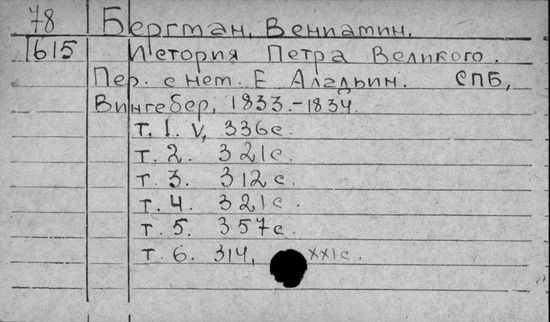 78 Бергман, Вениамин.
1615 История Петра Великого.
Пер. с нем. Е Аладьин. СПБ,
Вингебер, 1833.-1834.
т. 1. V, 336с.
т. 2. 321с.
т. 3. 312с.
т. 4. 321с.
т. 5. 357с.
т. 6. 314, XXIс.